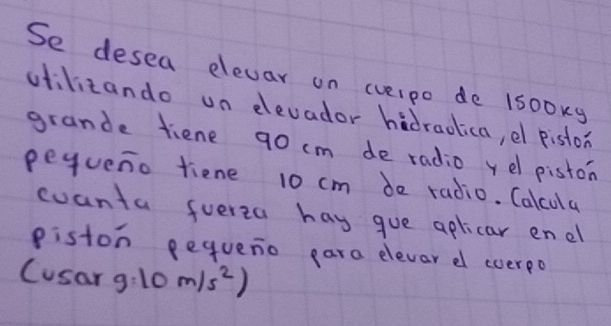 Se desea elevar un cuerpo de 1500kg
utilizando un elevador hidraolica, el piston
grande tiene 90 cm de radio y el pistón
pequeño tiene 10 cm de radio. Calcula
cuanta fuerza hay que aplicar en el
pistón pequeño para elevar el cuerpo
(usar g:10 m/s²)